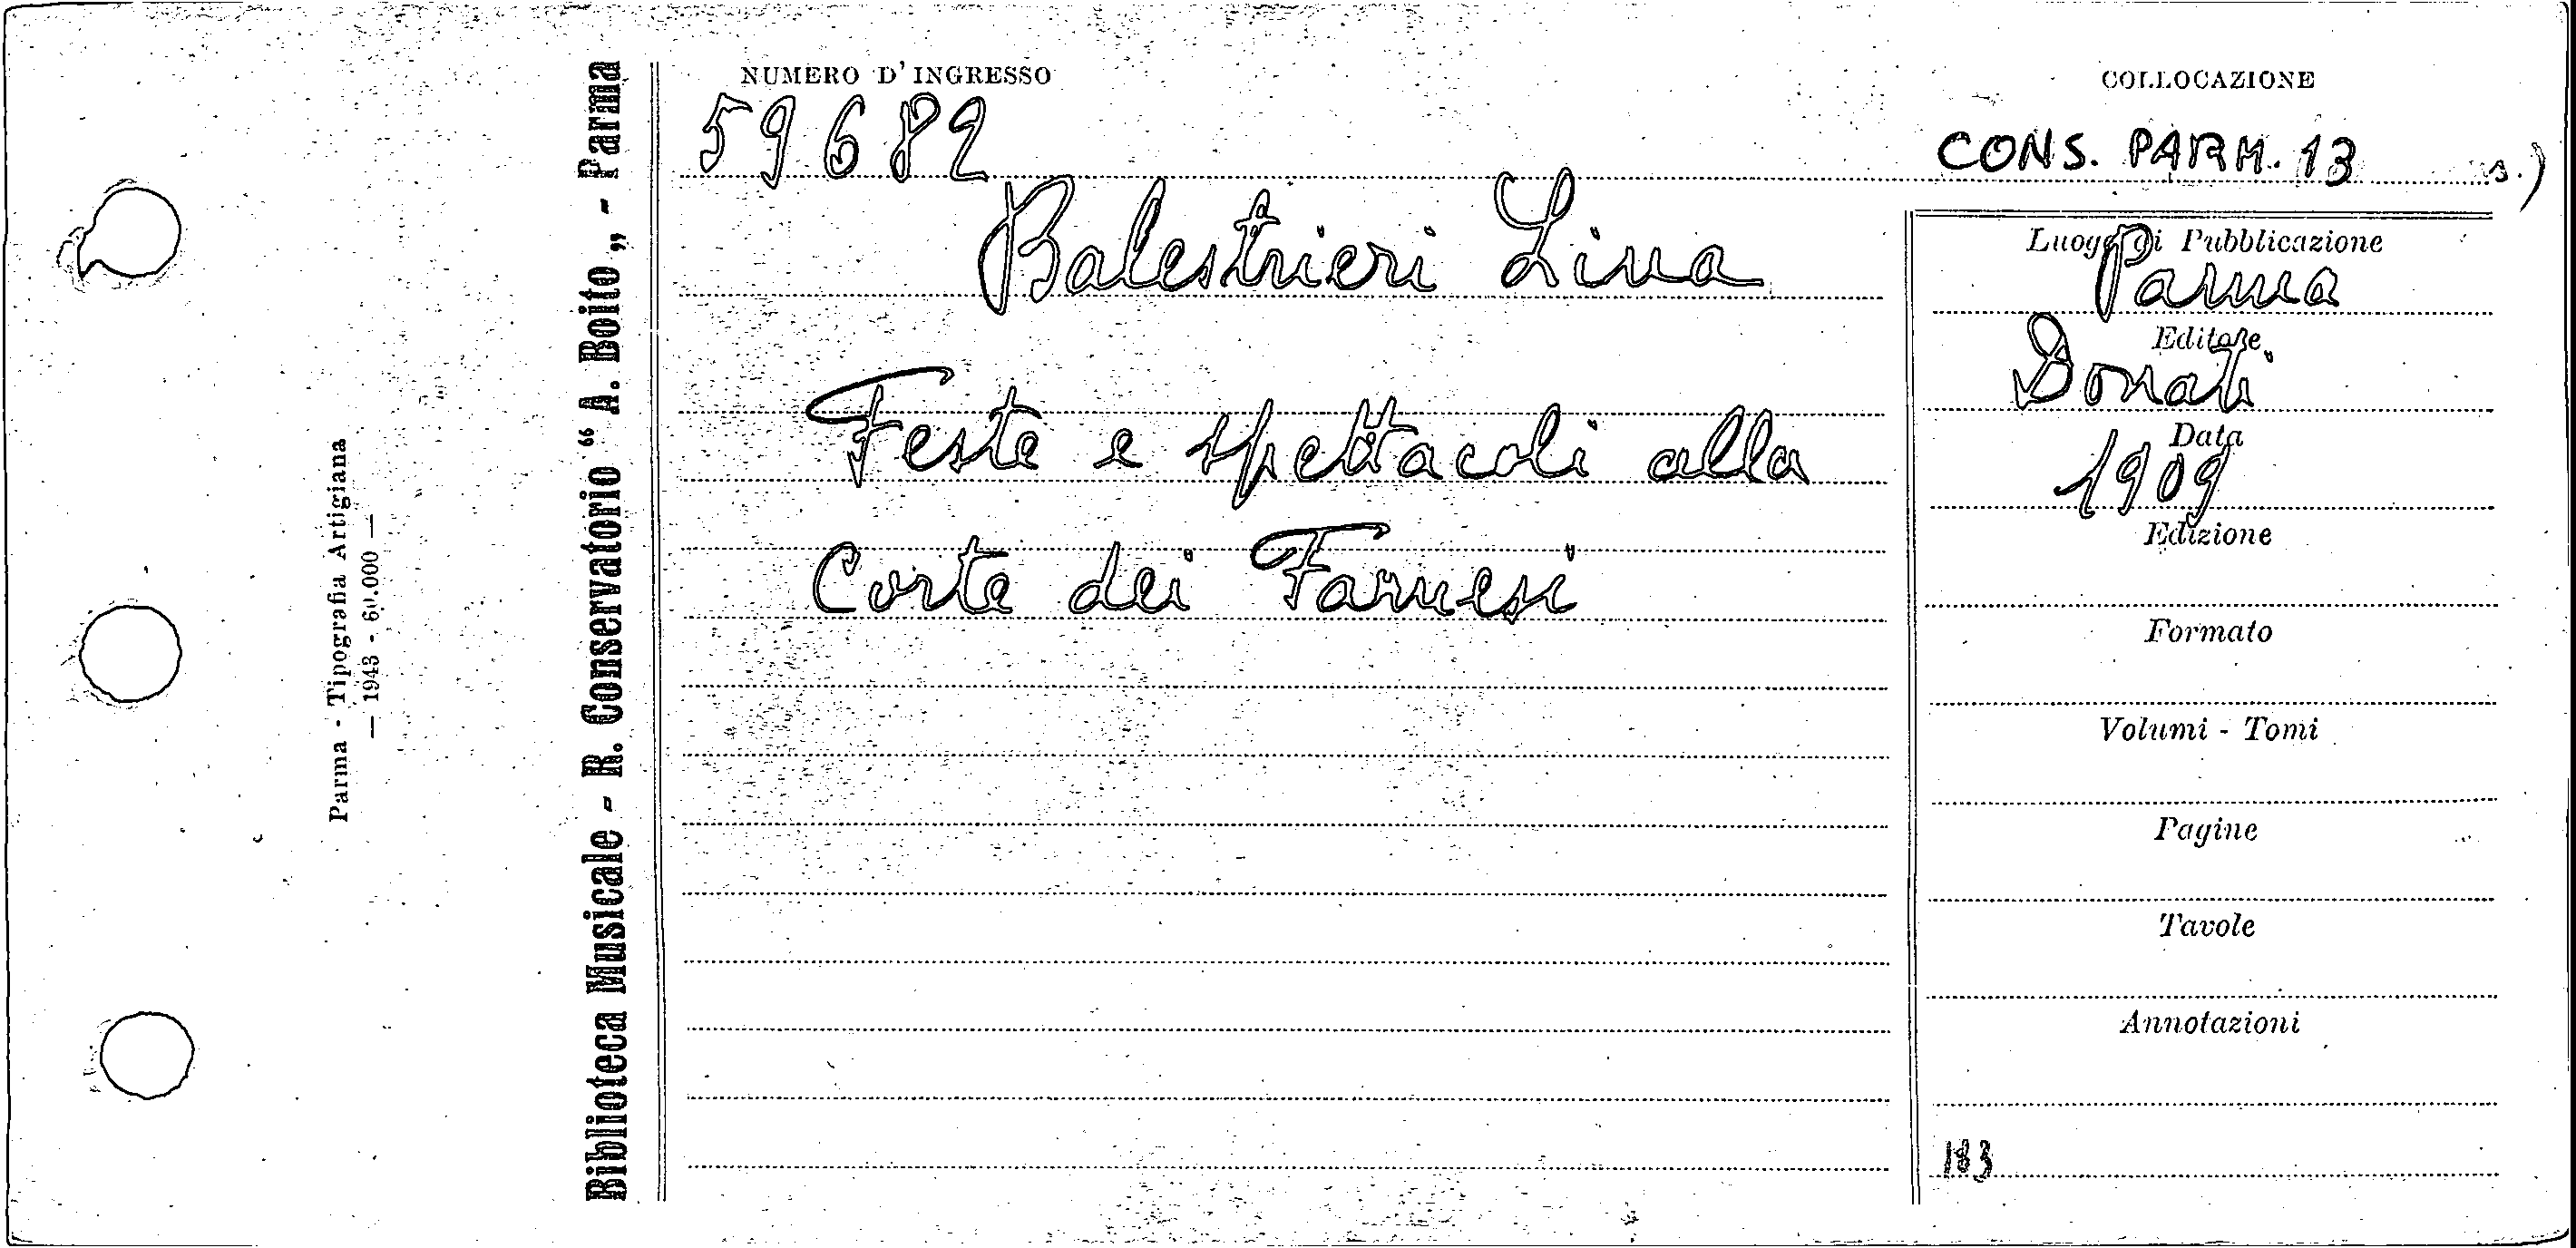 NUMERO D'INGRESSO
59682
COLLOCAZIONE
CONS. PARM. 13 s.)
Balestrieri Lina
Feste e spettacoli alla
Corte dei Farnesi
Luogo di Pubblicazione
Parma
Editore
Donati
Data
1909
Edizione
Formato
Volumi - Tomi
Pagine
Tavole
Annotazioni
183
Biblioteca Musicale - R. Conservatorio “ A. Boito „ - Parma
Parma - Tipografia Artigiana
— 1943 - 60.000 —